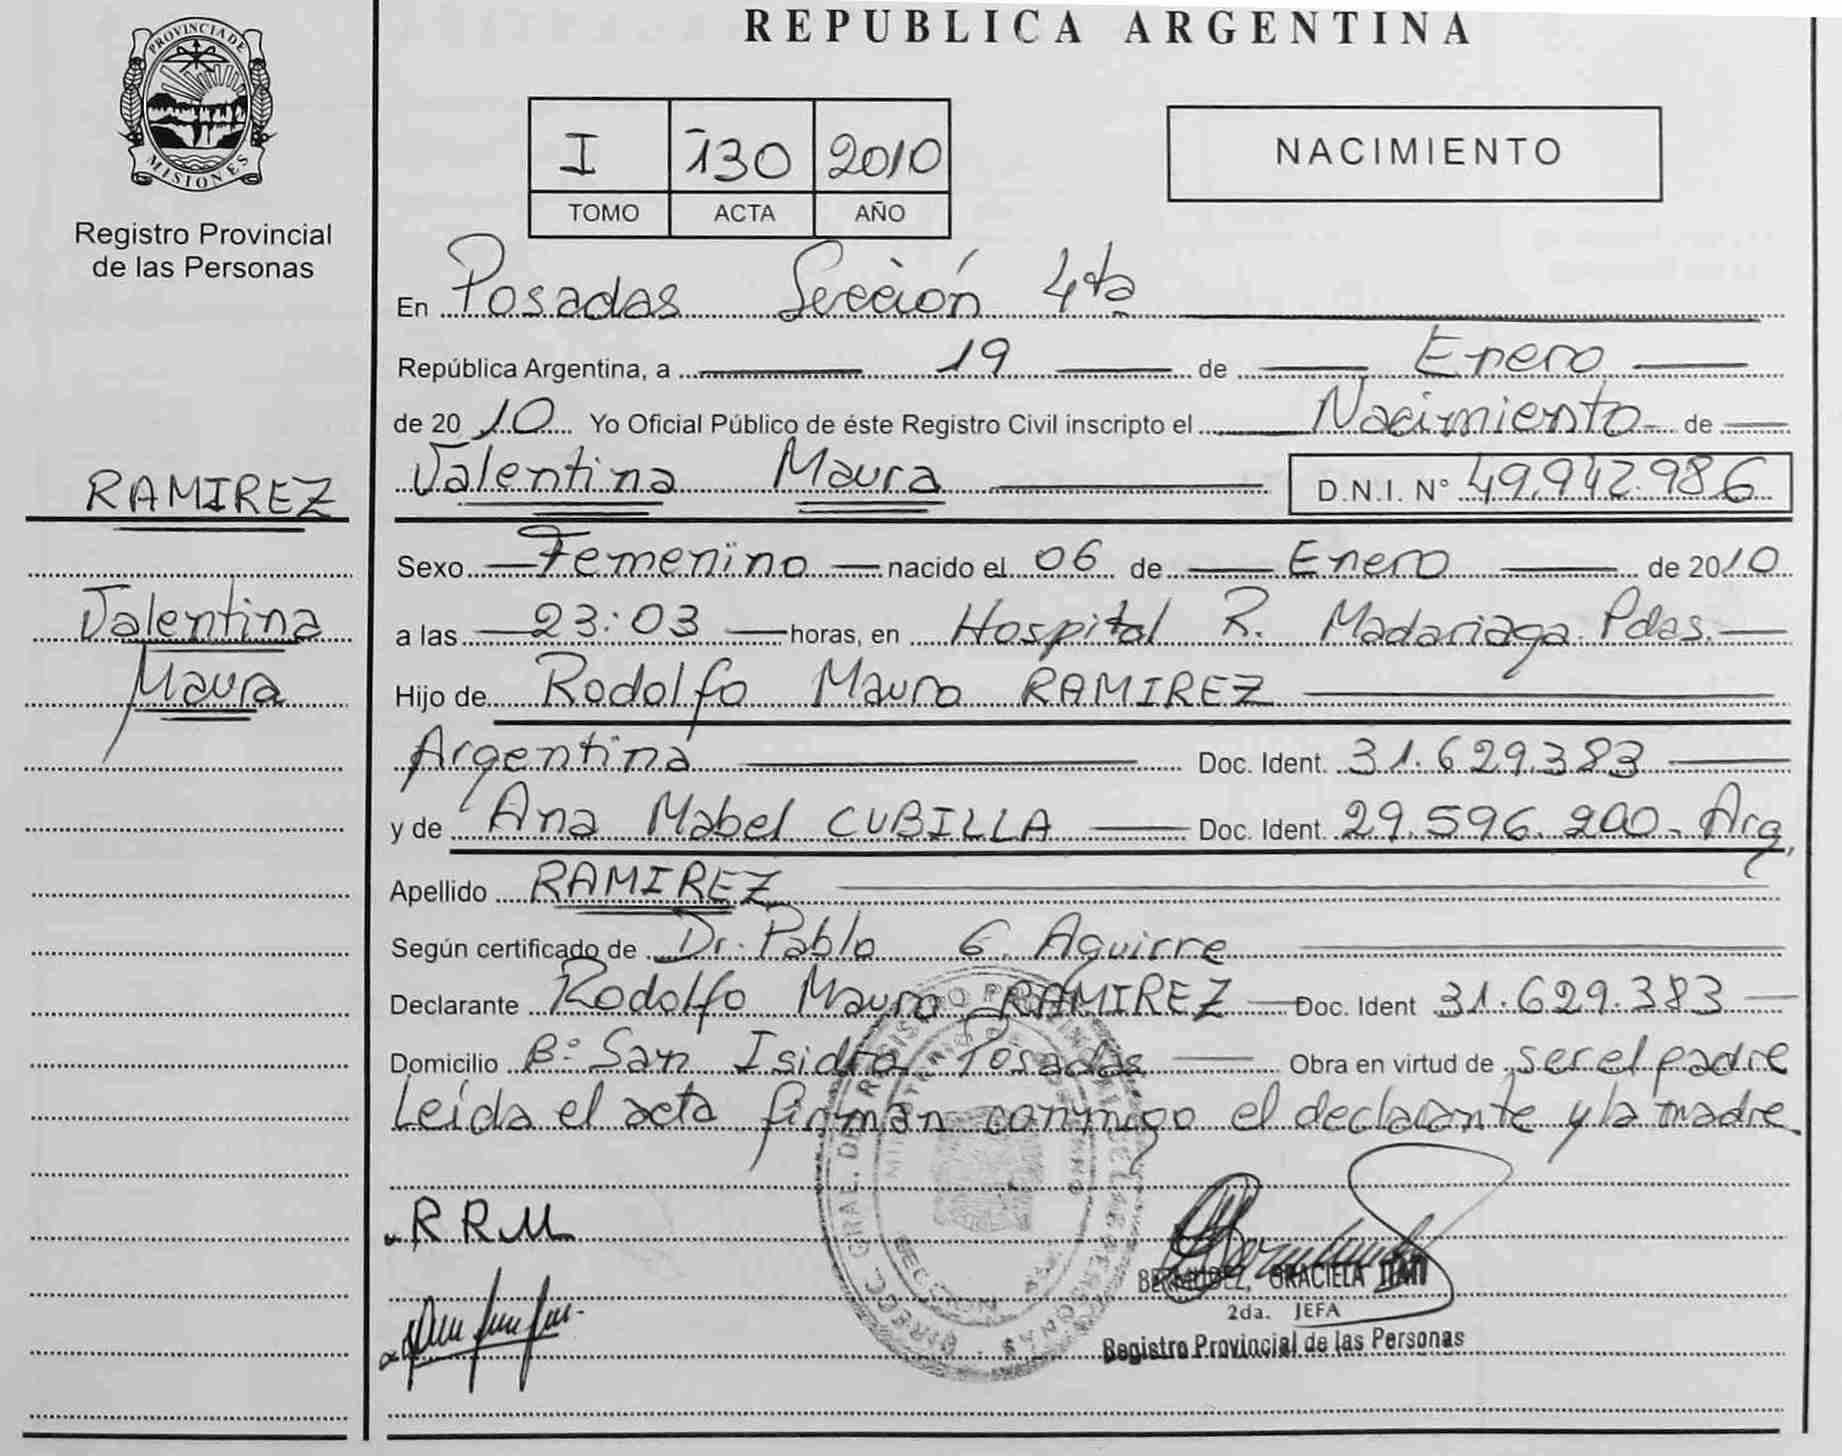 REPUBLICA ARGENTINA
PROVINCIA DE
MISIONES
Registro Provincial
de las Personas
I 130 2010
TOMO ACTA AÑO
NACIMIENTO
En Posadas Sección 4ta
República Argentina, a 19 de Enero
de 2010 Yo Oficial Público de éste Registro Civil inscripto el Nacimiento de
RAMIREZ
Valentina Maura D.N.I. N° 49.942.986
Sexo Femenino nacido el 06 de Enero de 2010
Valentina
a las 23:03 horas, en Hospital R. Madariaga Pdas.
Maura
Hijo de Rodolfo Mauro RAMIREZ
Argentina Doc. Ident. 31.629.383
y de Ana Mabel CUBILLA Doc. Ident. 29.596.200. Arg.
Apellido RAMIREZ
Según certificado de Dr. Pablo G. Aguirre
Declarante Rodolfo Mauro RAMIREZ Doc. Ident 31.629.383
Domicilio B° San Isidro Posadas Obra en virtud de ser el padre
Leída el acta firman conmigo el declarante y la madre.
R R M
BERMUDEZ, GRACIELA ITATI
2da. JEFA
Registro Provincial de las Personas